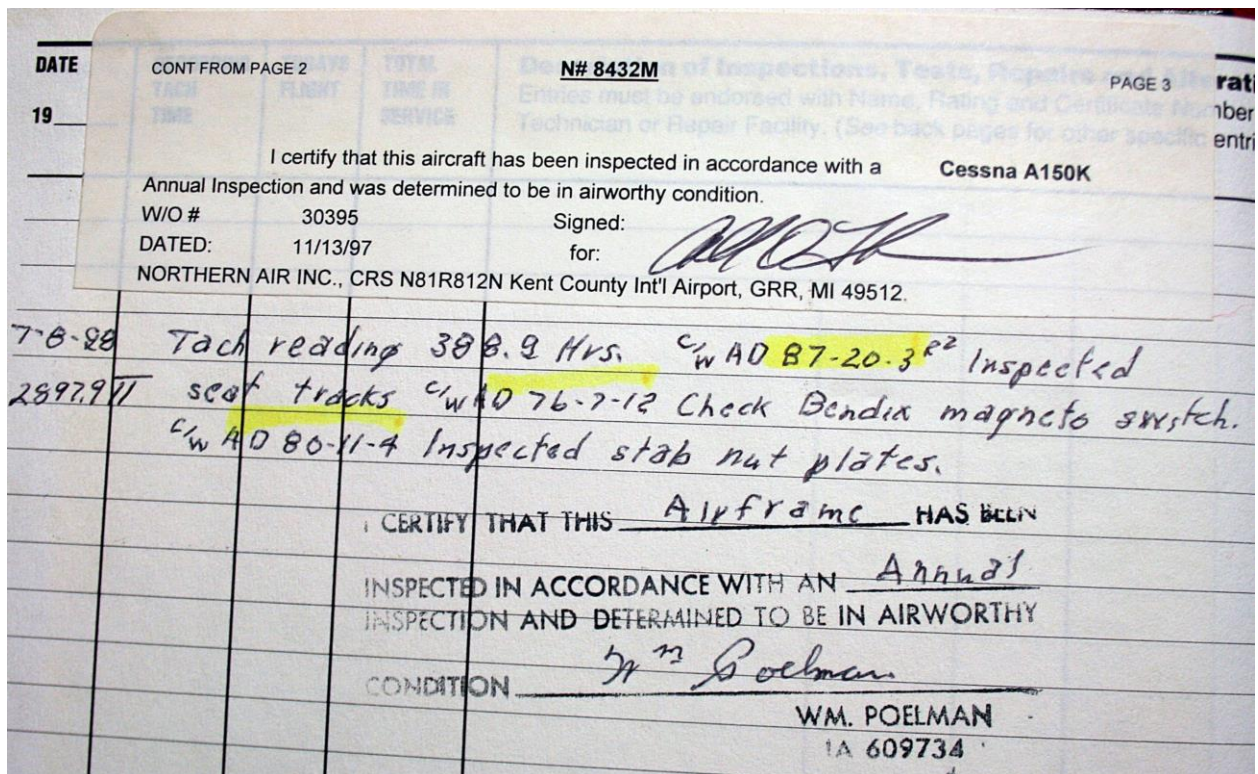 DATE CONT FROM PAGE 2 N# 8432M PAGE 3
19
I certify that this aircraft has been inspected in accordance with a Cessna A150K
Annual Inspection and was determined to be in airworthy condition.
W/O # 30395 Signed:
DATED: 11/13/97 for:
NORTHERN AIR INC., CRS N81R812N Kent County Int'l Airport, GRR, MI 49512.
7-8-98 Tach reading 388.9 Hrs. C/W AD 87-20-3 R2 Inspected
2897.9 TT seat tracks C/W AD 76-7-12 Check Bendix magneto switch.
C/W AD 80-11-4 Inspected stab nut plates.
I CERTIFY THAT THIS Airframe HAS BEEN
INSPECTED IN ACCORDANCE WITH AN Annual
INSPECTION AND DETERMINED TO BE IN AIRWORTHY
CONDITION Wm Poelman
WM. POELMAN
IA 609734